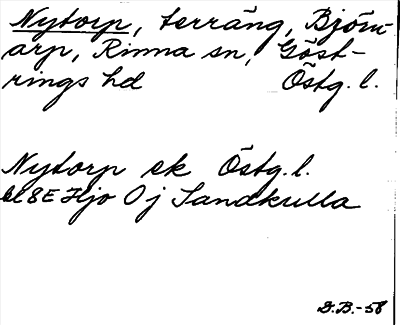 Nytorp, terräng, Björn-
arp, Rinna sn, Göst-
rings hd Östg. l.
Nytorp ek Östg. l.
bl 8E Hjo 0j Sandkulla
D.B.-58